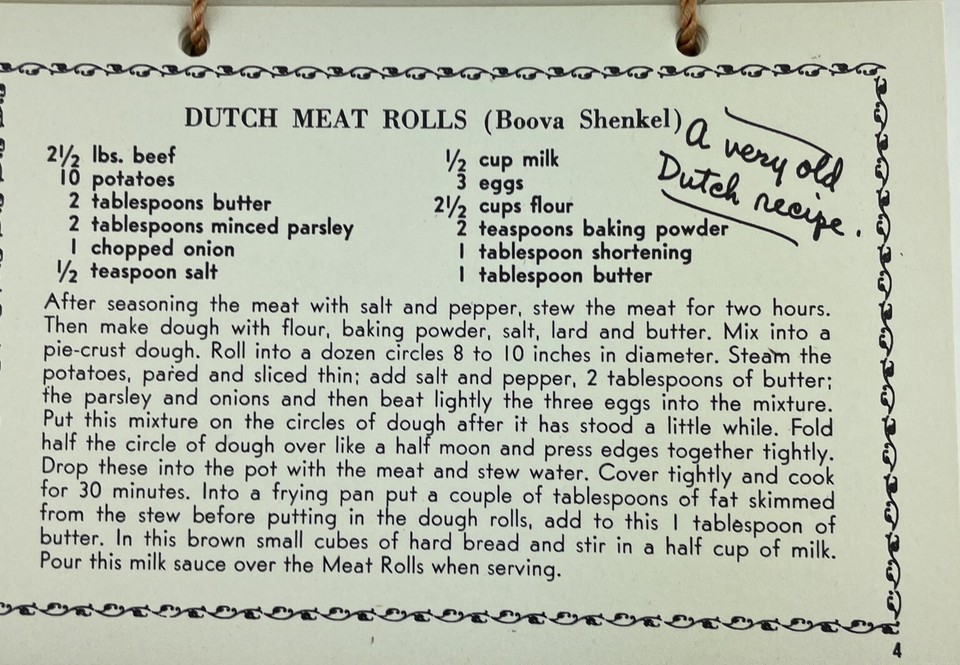 DUTCH MEAT ROLLS (Boova Shenkel)
A very old
Dutch recipe.
2½ lbs. beef
10 potatoes
2 tablespoons butter
2 tablespoons minced parsley
1 chopped onion
½ teaspoon salt
½ cup milk
3 eggs
2½ cups flour
2 teaspoons baking powder
1 tablespoon shortening
1 tablespoon butter
After seasoning the meat with salt and pepper, stew the meat for two hours.
Then make dough with flour, baking powder, salt, lard and butter. Mix into a
pie-crust dough. Roll into a dozen circles 8 to 10 inches in diameter. Steam the
potatoes, pared and sliced thin; add salt and pepper, 2 tablespoons of butter;
the parsley and onions and then beat lightly the three eggs into the mixture.
Put this mixture on the circles of dough after it has stood a little while. Fold
half the circle of dough over like a half moon and press edges together tightly.
Drop these into the pot with the meat and stew water. Cover tightly and cook
for 30 minutes. Into a frying pan put a couple of tablespoons of fat skimmed
from the stew before putting in the dough rolls, add to this 1 tablespoon of
butter. In this brown small cubes of hard bread and stir in a half cup of milk.
Pour this milk sauce over the Meat Rolls when serving.
4